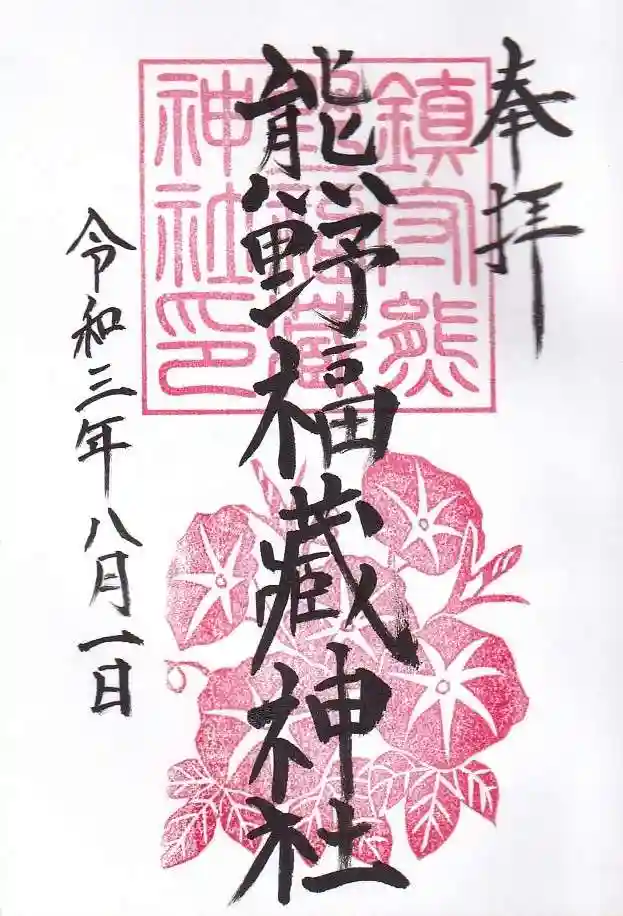 奉拝
鎮守熊
熊野福蔵神社
神社印
令和三年八月一日